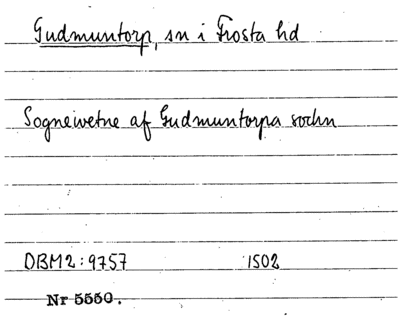 Gudmuntorp, sn i Frosta hd
Sogneiwetne af Gudmuntorpa sochn
DBM2:9757 1502
Nr 5550.